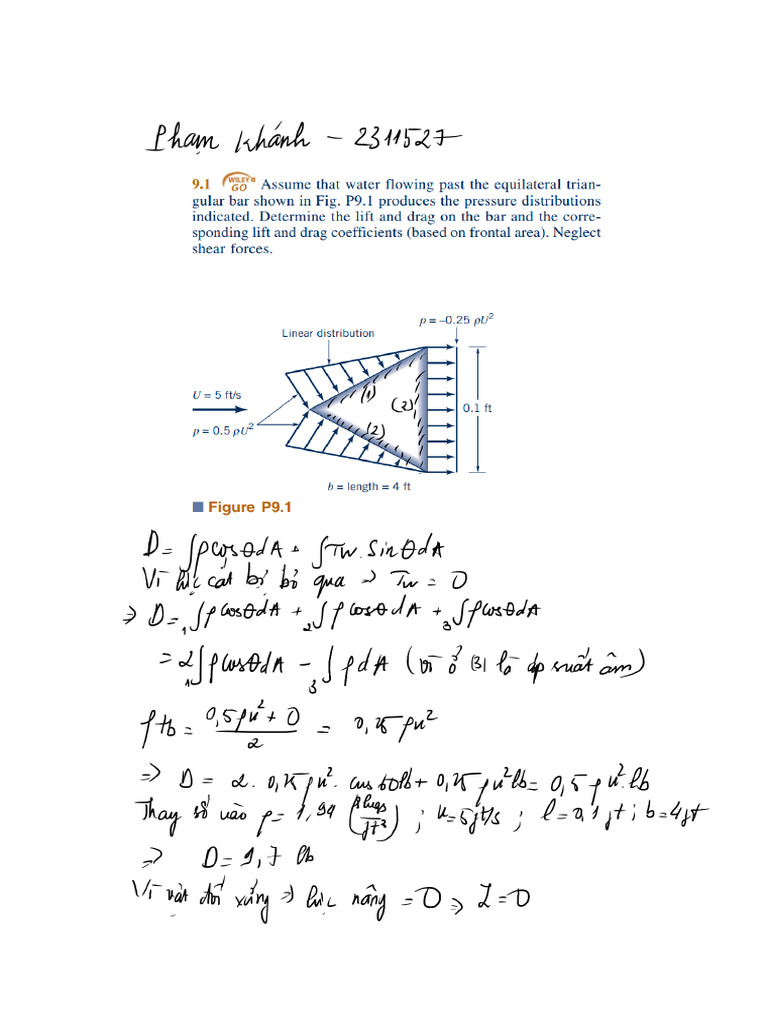 Phạm Khánh - 2311527
9.1 WILEY GO Assume that water flowing past the equilateral trian-
gular bar shown in Fig. P9.1 produces the pressure distributions
indicated. Determine the lift and drag on the bar and the corre-
sponding lift and drag coefficients (based on frontal area). Neglect
shear forces.
p = –0.25 ρU²
Linear distribution
U = 5 ft/s
(1)
(3)
0.1 ft
p = 0.5 ρU²
(2)
b = length = 4 ft
■ Figure P9.1
D = ∫pcosθdA + ∫τw.sinθdA
Vì lực cắt bị bỏ qua → τw = 0
⇒ D = ₁∫pcosθdA + ₂∫pcosθdA + ₃∫pcosθdA
= 2₁∫pcosθdA - ₃∫pdA (vì ở (3) là áp suất âm)
ptb = (0,5ρu² + 0)/2 = 0,25ρu²
=> D = 2. 0,25ρu². cos60lb + 0,25ρu²lb = 0,5ρu²lb
Thay số vào ρ = 1,94 (slugs/ft³) ; u = 5ft/s ; l = 0,1ft ; b = 4ft
=> D = 9,7 lb
Vì vật đối xứng => lực nâng = 0 => L = 0